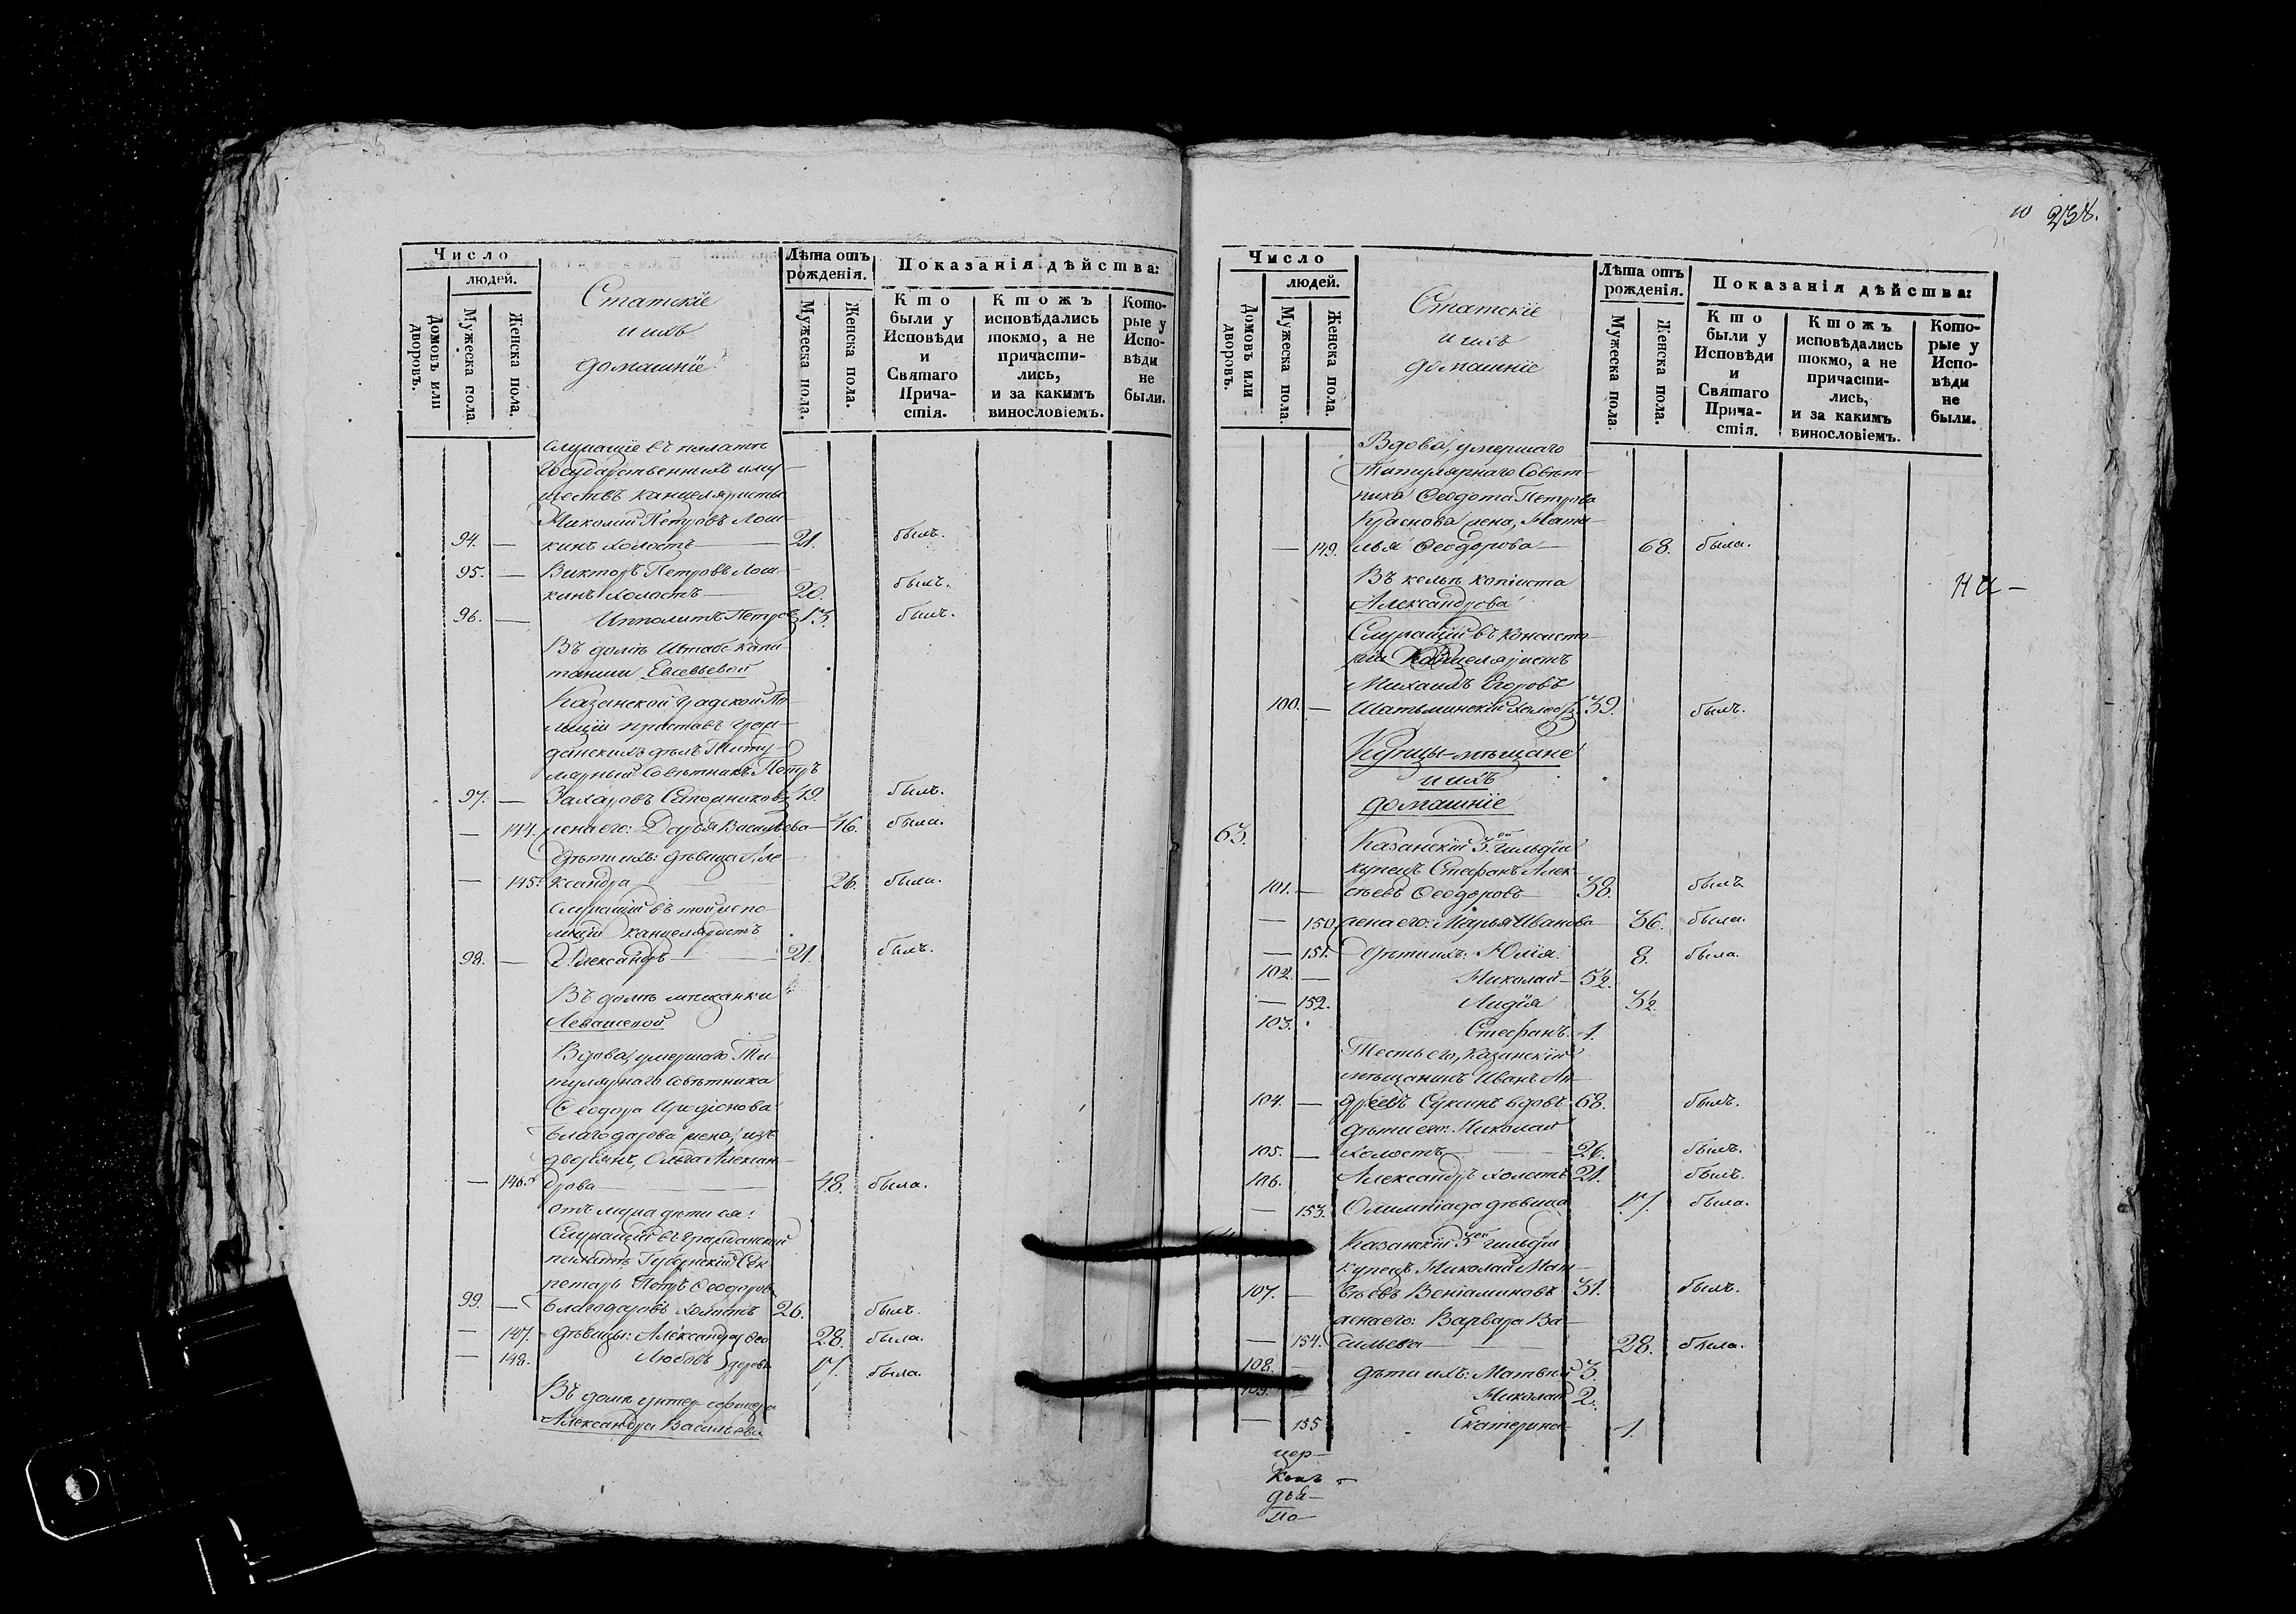 Число
людей.
Домовъ или дворовъ.
Мужеска пола.
Женска пола.
Статскіе
и ихъ
домашніе
Лѣта отъ
рожденія.
Мужеска пола.
Женска пола.
Показанія дѣйства:
Кто
были у
Исповѣди
и
Святаго
Прича-
стія.
Ктожъ
исповѣдались
токмо, а не
причасти-
лись,
и за какимъ
винословіемъ.
Кото-
рые у
Испо-
вѣди
не
были.
Служащіе въ палатѣ
Государственныхъ иму-
ществъ канцеляристы
Николай Петровъ Лош-
94. — кинъ холостъ — 21. былъ.
95. — Викторъ Петровъ Лош-
кинъ холостъ — 20. былъ.
96. — Ипполитъ Петровъ 13. былъ.
Въ домѣ Штабс капи-
танши Евсевьевой
Казанской градской По-
лиціи приставъ граж-
данскихъ дѣлъ Титу-
лярный Совѣтникъ Петръ
97. — Захаровъ Сапожниковъ 49. былъ.
— 144. жена его: Дарья Васильева — 46. была.
Дѣти ихъ: дѣвица Але-
— 145. ксандра 26. была.
Служащій въ той же по-
лиціи канцеляристъ
98. — Александръ — 21. былъ.
Въ домѣ мѣщанки
Левашевой
Вдова, умершаго Ти-
тулярнаго Совѣтника
Ѳеодора Иродіонова
Благодарова жена, изъ
дворянъ, Ольга Алексан-
— 146. дрова — 48. была.
отъ мужа дѣти ея:
Служащій въ гражданской
палатѣ Губернскій Сек-
ретарь Петръ Ѳеодоровъ
99. — Благодаровъ холостъ 26. былъ.
— 147. дѣвицы: Александра Ѳео- 28. была.
— 148. Любовь доровы 17. была.
Въ домѣ унтер-офицера
Александра Васильева
10 238.
Число
людей.
Домовъ или дворовъ.
Мужеска пола.
Женска пола.
Статскіе
и ихъ
домашніе
Лѣта отъ
рожденія.
Мужеска пола.
Женска пола.
Показанія дѣйства:
Кто
были у
Исповѣди
и
Святаго
Прича-
стія.
Ктожъ
исповѣдались
токмо, а не
причасти-
лись,
и за какимъ
винословіемъ.
Кото-
рые у
Испо-
вѣди
не
были.
Вдова, умершаго
Титулярнаго Совѣт-
ника Ѳеодота Петрова
Краснова жена, Ната-
— 149. лья Ѳеодорова — 68. была.
Въ кельѣ копіиста
Александрова
На —
Служащій въ Консисто-
ріи Канцеляристъ
Михаилъ Егоровъ
100. — Шатьминскій холостъ 39. былъ.
Купцы-мѣщане
и ихъ
домашніе
63. Казанскій 3.ей гильдіи
купецъ Стефанъ Алек-
101. — сѣевъ Ѳеодоровъ — 38. былъ
— 150. жена его: Марья Иванова 36. была.
— 151. Дѣти ихъ: Юлія. 8. была.
102. — Николай — 5½.
— 152. Лидія 3½.
103. Стефанъ — 1.
Тесть его, Казанскій
мѣщанинъ Иванъ Ан-
104. — дреевъ Сукинъ вдовъ 68. былъ.
дѣти его: Николай
105. — холостъ — 26. былъ.
106. Александръ холостъ 21. былъ.
— 153. Олимпіада дѣвица 17. была.
Казанскій 3ей гильдіи
купецъ Николай Мат-
107. — вѣевъ Веніаминовъ 31. былъ.
жена его: Варвара Ва-
— 154. сильева — 28. была.
108. — дѣти ихъ: Матвѣй 3.
109. — Николай 2.
— 155 Екатерина 1.
цер-
ковь —
дья-